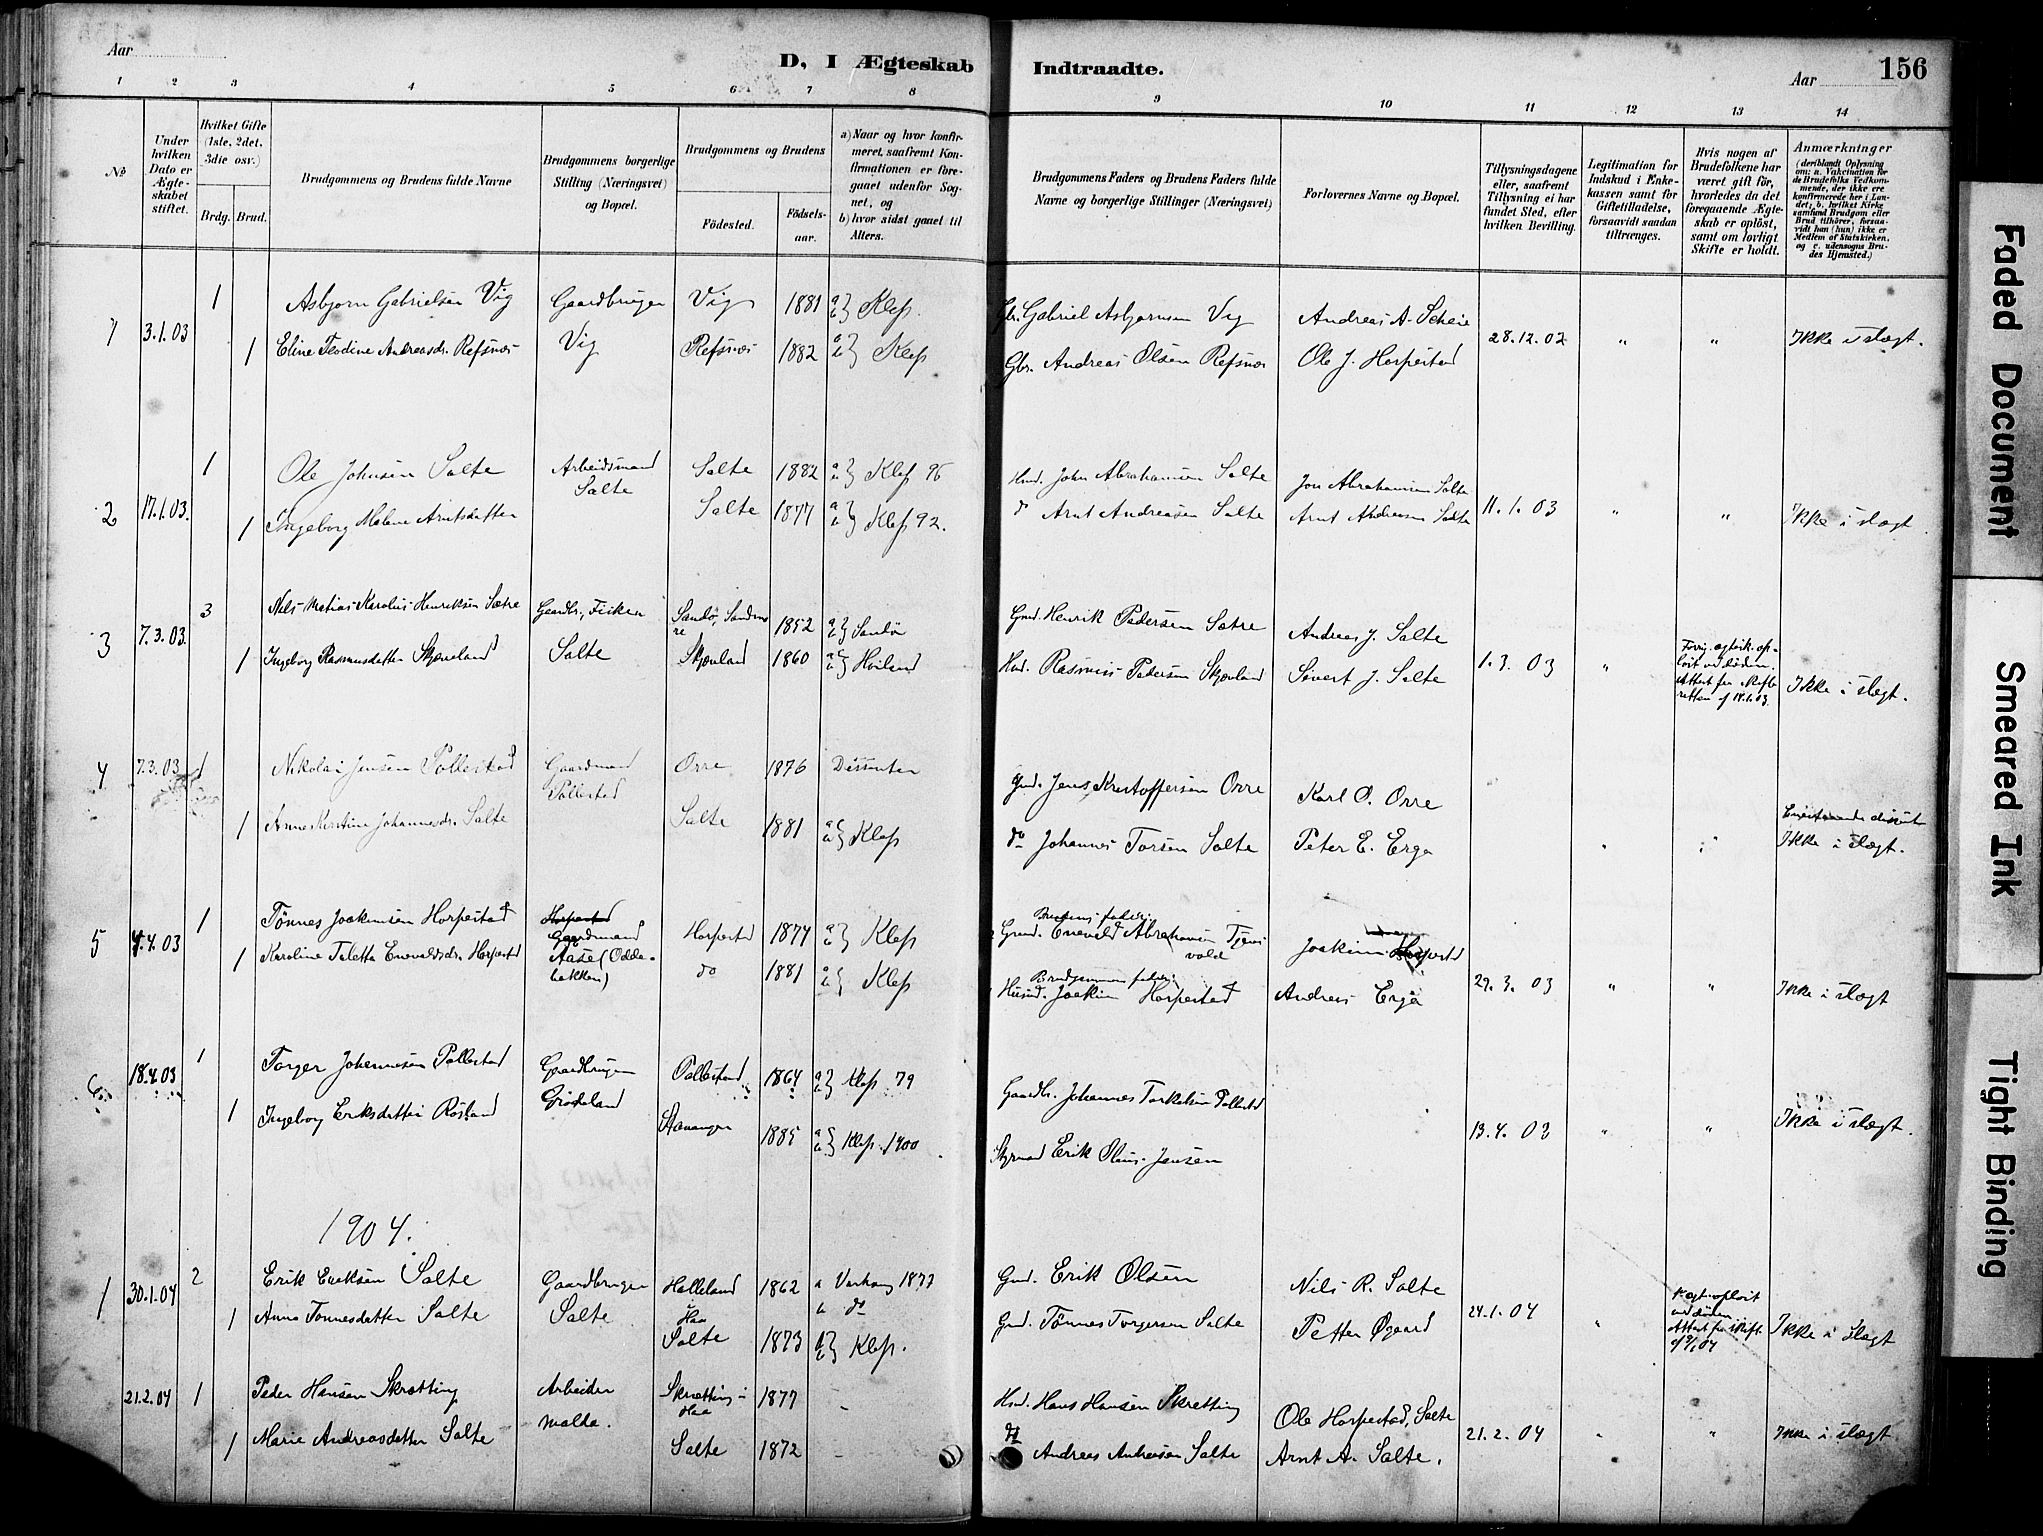 Aar
D, I Ægteskab Indtraadte.
Aar
156
1 2 3 4 5 6 7 8 9 10 11 12 13 14
No
Under hvilken Dato er Ægteskabet stiftet.
Hvilket Gifte (1ste, 2det, 3die osv.)
Brdg. Brud.
Brudgommens og Brudens fulde Navne
Brudgommens borgerlige Stilling (Næringsvei) og Bopæl.
Brudgommens og Brudens
Födested.
Födsels-aar.
a) Naar og hvor konfirmeret, saafremt Konfirmationen er foregaaet udenfor Sognet, og
b) hvor sidst gaaet til Alters.
Brudgommens Faders og Brudens Faders fulde Navne og borgerlige Stillinger (Næringsvei)
Forlovernes Navne og Bopæl.
Tillysningsdagene eller, saafremt Tillysning ei har fundet Sted, efter hvilken Bevilling.
Legitimation for Indskud i Enkekassen samt for Giftetilladelse, forsaavidt saadan tiltrænges.
Hvis nogen af Brudefolkene har været gift för, hvorledes da det foregaaende Ægteskab er oplöst, samt om lovligt Skifte er holdt.
Anmærkninger
(deriblandt Oplysning om: a. Vakcination for de Brudefolks Vedkommende, der ikke ere konfirmerede her i Landet; b. hvilket Kirkesamfund Brudgom eller Brud tilhörer, forsaavidt han (hun) ikke er Medlem af Statskirken, og c. udensogns Brudes Hjemsted.)
1 3.1.03 1 Asbjørn Gabrielsen Vig Gaardbruger Vig 1881 a b} Klep. Gbr. Gabriel Asbjørnsen Vig Andreas A. Scheie 28.12.02 " " Ikke i slægt.
1 Eline Teodine Andreasdr. Refsnes Vig Refsnes 1882 a b} Klep Gbr. Andreas Olsen Refsnes Ole J. Horpestad
2 17.1.03. 1 Ole Johnsen Salte Arbeidsmand Salte Salte 1882 a b} Klep 96 Hmd. John Abrahamsen Salte Jon Abrahamsen Salte 11.1.03 " " Ikke i slægt
1 Ingeborg Malene Arntsdatter Salte 1877 a b} Klep 92. do Arnt Andreasen Salte Arnt Andreasen Salte
3 7.3.03. 3 Nils Matias Karolus Henriksen Sætre Gaardbr., Fisker Sandø, Søndmøre 1852 a b} Sandø Gmd. Henrik Pedersen Sætre Andreas J. Salte 1.3.03 "
1 Ingeborg Rasmusdatter Skjæveland Salte Skjævland 1860 a b} Høiland Hmd. Rasmus Pedersen Skjævland Sivert J. Salte
Forrig. ægtesk. opløst ved døden. Attest fra skifteretten af 14.1.03. Ikke i slægt.
4 7.3.03 1 Nikolai Jensen Pollestad Gaardmand Pollestad Orre 1876 Dissenter Gmd. Jens Kristoffersen Orre Karl O. Orre
1 Anne Kirstine Johannesdr. Salte Salte 1881 a b} Klep do Johannes Torsen Salte Peter E. Erga " " Ikke i slægt.
5 4.4.03 1 Tønnes Joakimsen Horpestad Horpestad Gaardmand Aase (Oddebakken) Horpestad 1874 a b} Klep
Brudens fader: Gmd. Enevald Abrahamsen Joakim Horpestad
1 Karoline Taletta Enevaldsdr. Horpestad do 1881 a b} Klep
Brudgommens fader: Husmd. Joakim Horpestad Andreas Erga 29.3.03 " " Ikke i slægt
6 18.4.03 1 Torger Johannesen Pollestad Gaardbruger Grødeland Pollestad 1864 a b} Klep 79 Gaardbr. Johannes Torkelsen Pollestad
1 Ingeborg Eriksdatter Rosland Stavanger 1885 a b} Klep. 1900 Erik Olaus Jensen 13.4.03 " " Ikke i slægt.
1904.
1 30.1.04 2 Erik Eriksen Salte Gaardbruger Salte Halleland Haa 1862 a Varhaug 1877 b do Gmd. Erik Olsen Nils R. Salte 24.1.04 "
1 Anna Tønnesdatter Salte Salte 1873 a b} Klep. Gmd. Tønnes Torgersen Salte Petter Øgaard
ægt. opløst ved døden Attest fra skift. Ikke i slægt
21.2.04 1 Peder Hansen Skretting Arbeider Malde. Skretting i Haa 1877 - Hmd. Hans Hansen Skretting Ole Horpestad, Salte 21.2.04 " " Ikke i slægt
1 Marie Andreasdatter Salte Salte 1872 - do Andreas Salte Arnt A. Salte.
Faded Document
Smeared Ink
Tight Binding